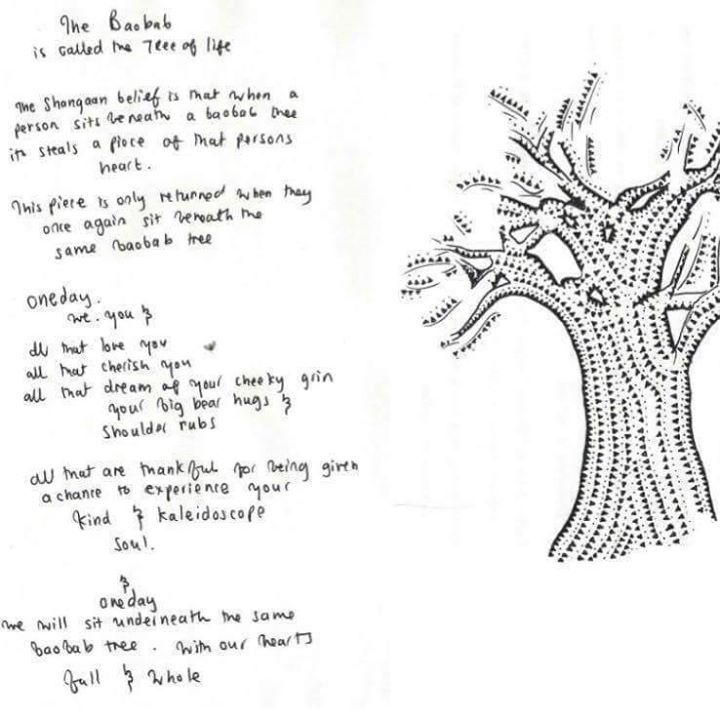 The Baobab
is called the Tree of life
The Shangaan belief is that when a
person sits beneath a baobab tree
it steals a piece of that persons
heart.
This piece is only returned when they
once again sit beneath the
same baobab tree
oneday.
we. you &
all that love you
all that cherish you
all that dream of your cheeky grin
your big bear hugs &
shoulder rubs
all that are thankful for being given
a chance to experience your
kind & kaleidoscope
soul.
&
oneday
we will sit underneath the same
baobab tree. with our hearts
full & whole